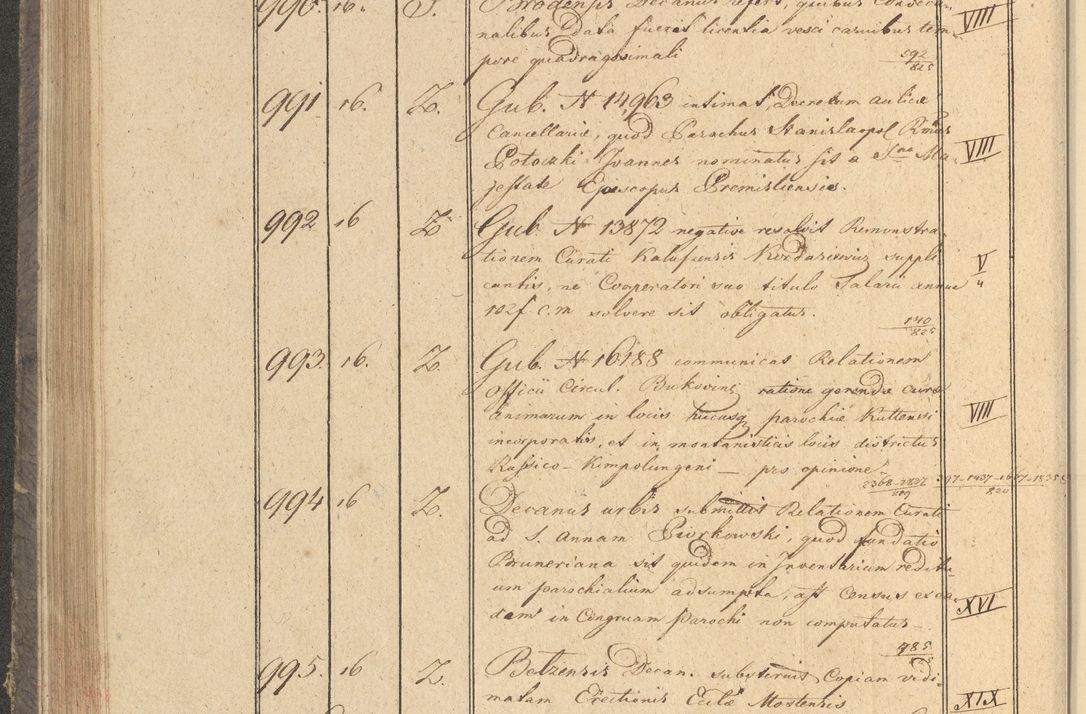 990. 16. S. Brodensis Decanus refert, quibus Condeca-
nalibus data fuerit licentia vesci carnibus tem- VIII
pore quadragesimali 592/825
991 16. Z. Gub. N 14,963 intimat, Decretum aulicæ
Cancellariæ, quod Parochus Stanislaopol Rmus
Potoczki Joannes nominatus sit a Sma Ma- VIII
jestate Episcopus Premisliensis.
992 16 Z Gub. N 13872 negative resolvit Remonstra-
tionem Curati Kalusiensis suppli V
cantis, ne Cooperatori suo titulo Salarii annue "
102f c.m solvere sit obligatus. 140/825
993. 16. Z. Gub. N 16188 communicat Relationem
officii Circul. Bukovinæ ratione gerendæ curæ
animarum in locis hucusq parochiæ Kuttensi VIII
incorporatis, et in montanisticis locis districtus
Russico-Kimpolungeni — pro opinione.
994 16 Z. Decanus urbis submittit Relationem Curati
ad S. Annam Piorkowski, quod fundatio
Bruneriana sit quidem in Inventarium redit-
um parochialium adsumpta, ast Census ex ea-
dem in Congruam parochi non computatus XVI
785
995. 16 Z. Belzensis Decan. substernit Copiam vidi-
matam Erectionis Eclæ Mostensis XIX